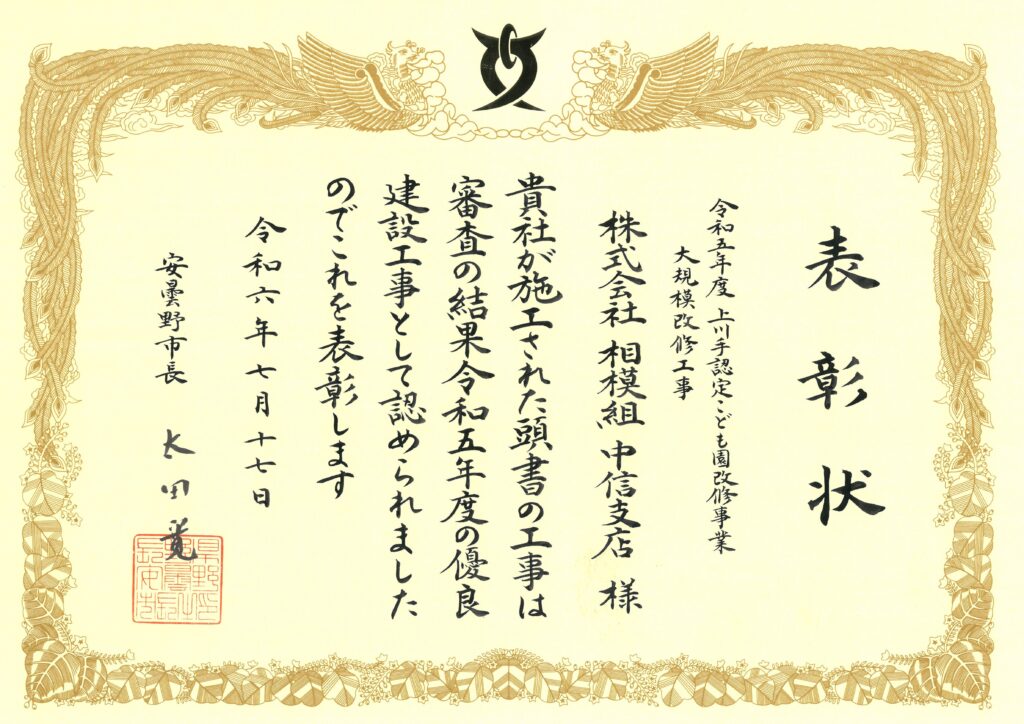 表彰状
令和五年度 上川手認定こども園改修事業
大規模改修工事
株式会社 相模組 中信支店 様
貴社が施工された頭書の工事は
審査の結果令和五年度の優良
建設工事として認められました
のでこれを表彰します
令和六年七月十七日
安曇野市長 太田寛